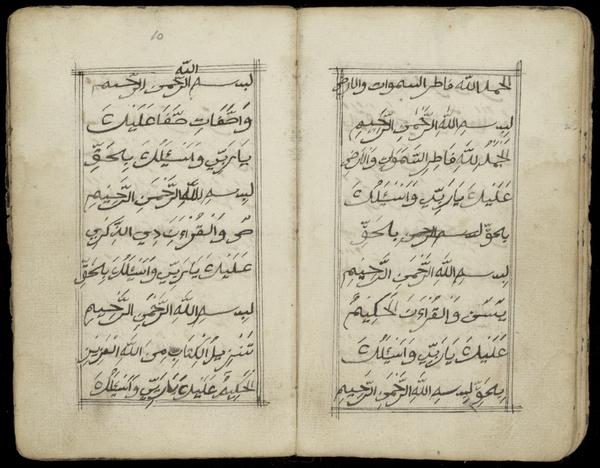 الحمد لله فاطر السموات والارض
بسم الله الرحمن الرحيم
الحمد لله فاطر السموات والارض
عليك يا ربي واسئلك
بحق بحق
بسم الله الرحمن الرحيم
يس والقرءان الحكيم
عليك يا ربي واسئلك
بحق بسم الله الرحمن الرحيم
10
الله
بسم الرحمن الرحيم
واصفات صفا عليك
يا ربي واسئلك بحق
بسم الله الرحمن الرحيم
ص والقرءان ذي الذكري
عليك يا ربي واسئلك بحق
بسم الله الرحمن الرحيم
تنزيل الكتاب من الله العزيز
الحكيم عليك يا ربي واسئلك